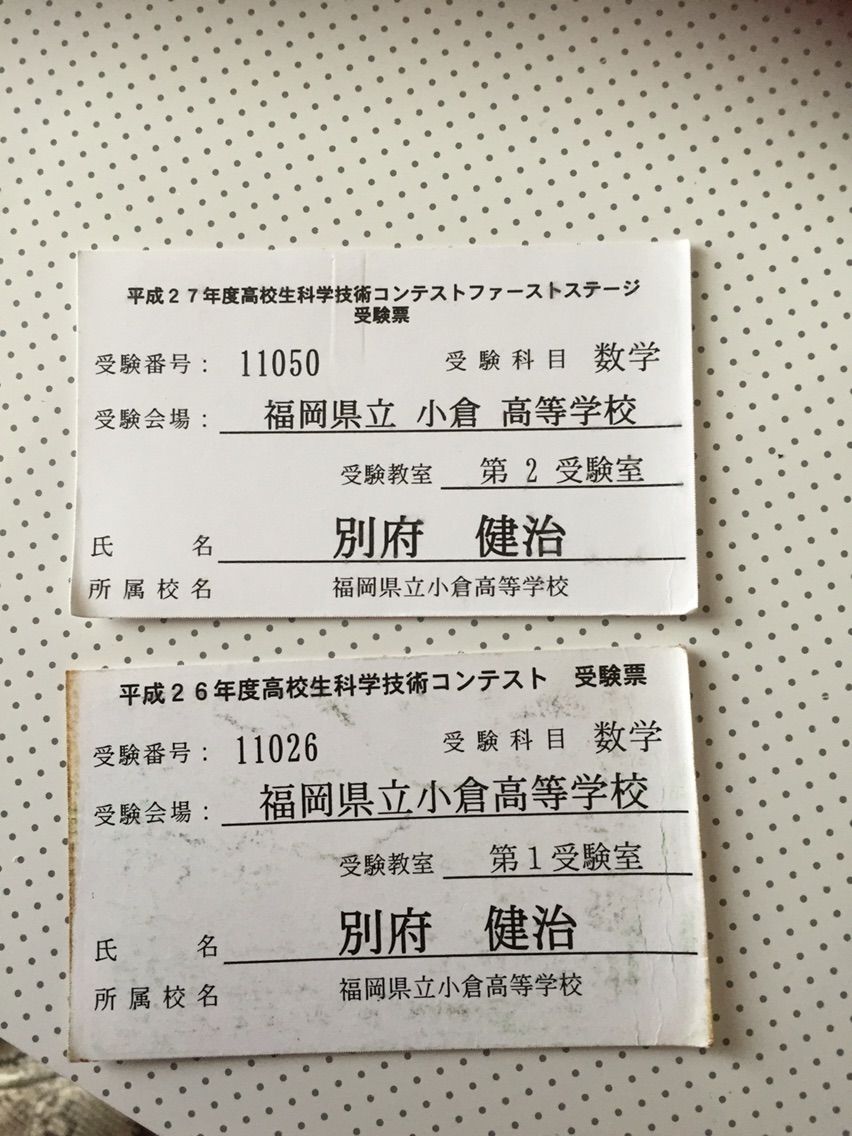 平成27年度高校生科学技術コンテストファーストステージ
受験票
受験番号： 11050 受験科目 数学
受験会場： 福岡県立 小倉 高等学校
受験教室 第 2 受験室
氏 名 別府 健治
所属校名 福岡県立小倉高等学校
平成26年度高校生科学技術コンテスト 受験票
受験番号： 11026 受験科目 数学
受験会場： 福岡県立小倉高等学校
受験教室 第1受験室
氏 名 別府 健治
所属校名 福岡県立小倉高等学校